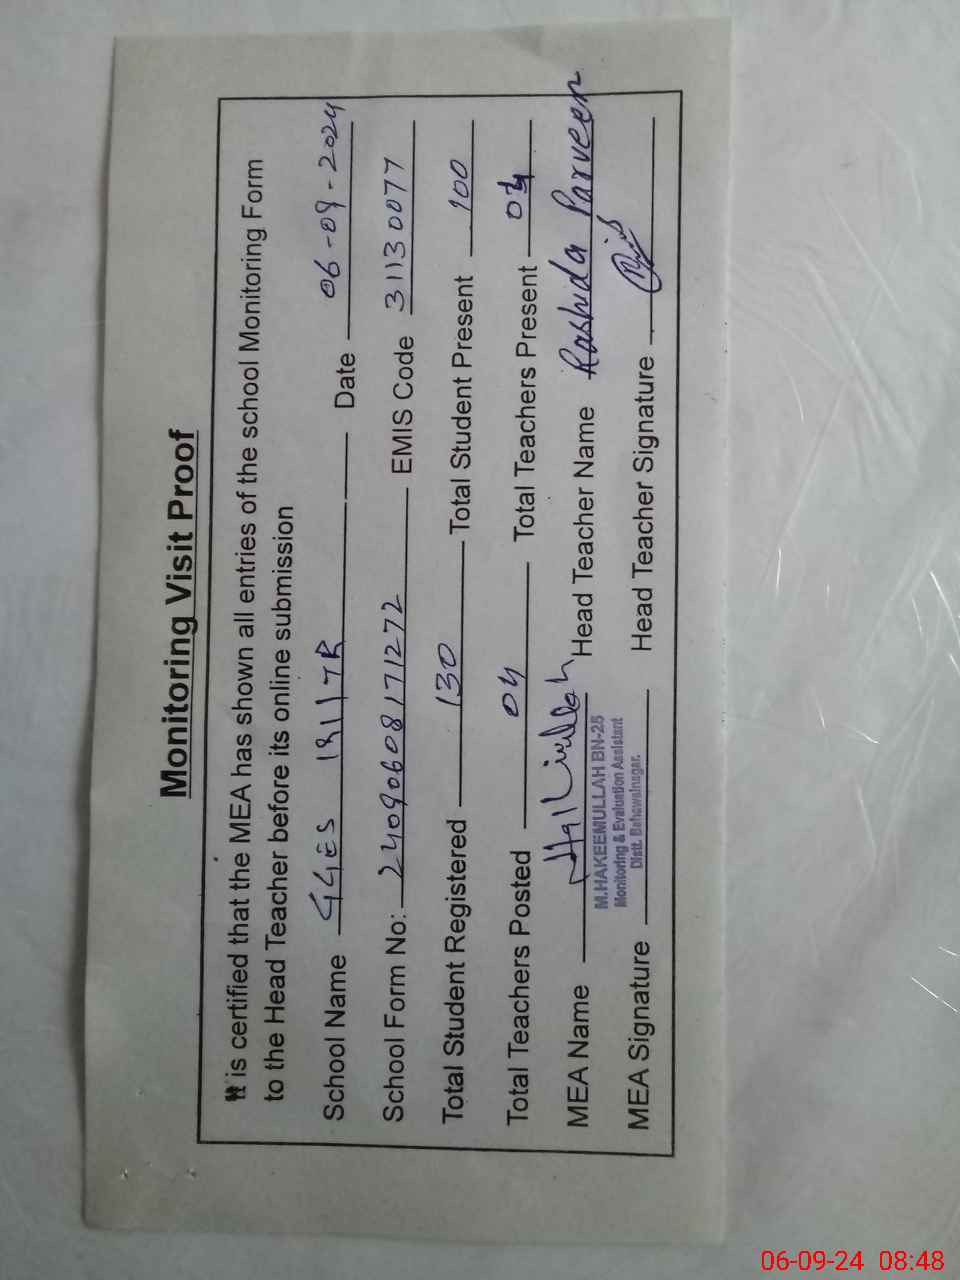 Monitoring Visit Proof
It is certified that the MEA has shown all entries of the school Monitoring Form
to the Head Teacher before its online submission
School Name GGES 181/7R Date 06-09-2024
School Form No: 24090608171272 EMIS Code 31130077
Total Student Registered 130 Total Student Present 100
Total Teachers Posted 04 Total Teachers Present 04
MEA Name Head Teacher Name Rashida Parveen
M.HAKEEMULLAH BN-25
Monitoring & Evaluation Assistant
Distt. Bahawalnagar.
MEA Signature Head Teacher Signature
06-09-24 08:48